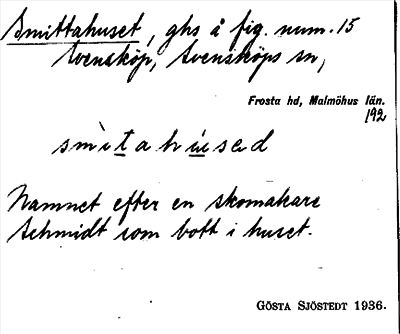 Smittahuset, ghs å fig. num. 15
Svensköp, Svensköps sn,
Frosta hd, Malmöhus län.
192
smìtahúsəd
Namnet efter en skomakare
Schmidt som bott i huset.
GÖSTA SJÖSTEDT 1936.